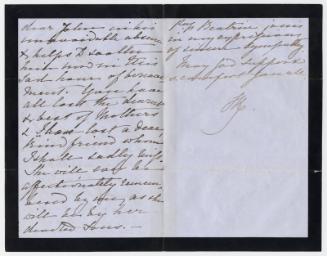 dear John in his
unavoidable absence
& helps & soothes
him now in this
sad hour of bereave
ment. You have
all lost the dearest
& best of Mothers
& I have lost a dear,
kind friend whom
I shall sadly miss.
She will ever be
affectionately remem
bered by me, as she
will be by her
devoted Sons. —
Pss Beatrice joins
in my expressions
of sincere sympathy.
May God support
& comfort you all.